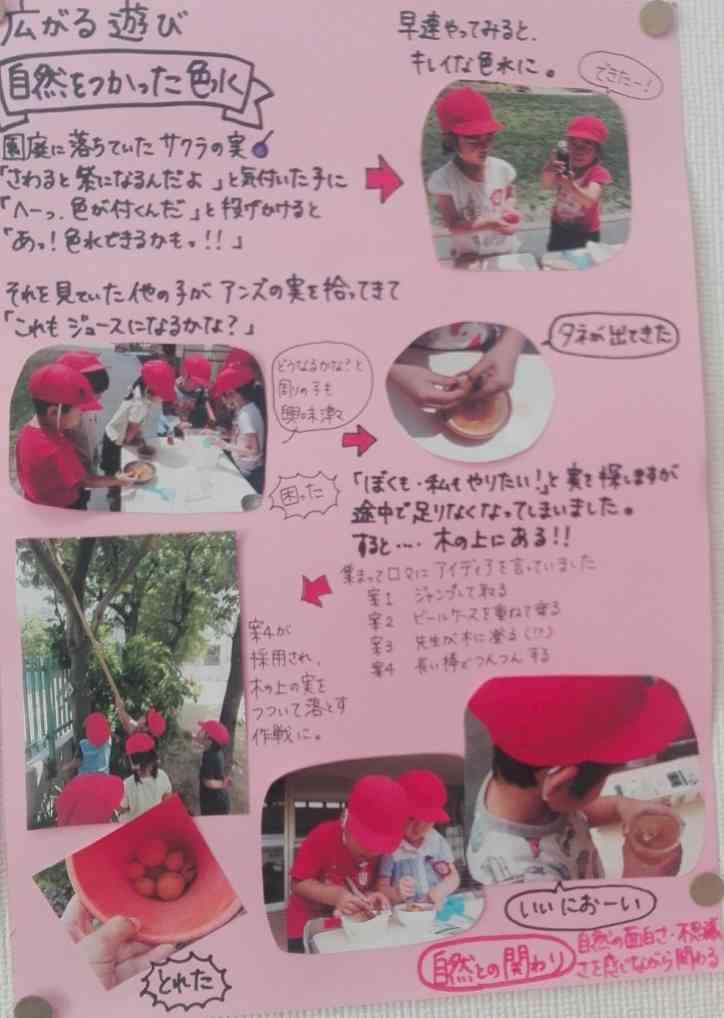 広がる遊び
自然をつかった色水
園庭に落ちていたサクラの実
「さわると紫になるんだよ」と気付いた子に
「へーっ、色が付くんだ」と投げかけると
「あっ!色水できるかもっ!!」
早速やってみると、
キレイな色水に。
できたー!
それを見ていた他の子がアンズの実を拾ってきて
「これもジュースになるかな?」
どうなるかな?と
周りの子も
興味津々
タネが出てきた
困った
「ぼくも・私もやりたい!」と実を探しますが
途中で足りなくなってしまいました。
すると…木の上にある!!
集まって口々にアイディアを言っていました
案1 ジャンプして取る
案2 ビールケースを重ねて登る
案3 先生が木に登る(!?)
案4 長い棒でつんつんする
案4が
採用され、
木の上の実を
つついて落とす
作戦に。
とれた
いいにおーい
自然との関わり
自然の面白さ・不思議
さを感じながら関わる